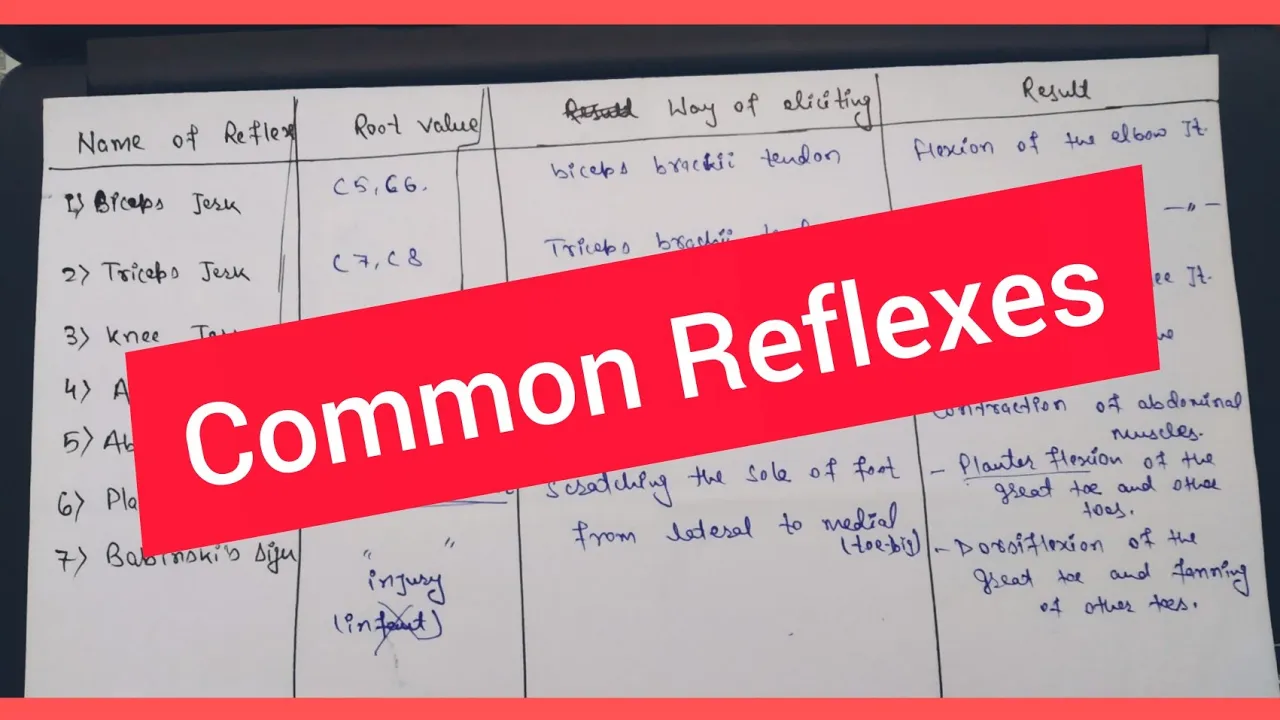 Name of Reflex Root value Way of eliciting Result
1) Biceps Jerk C5, C6. biceps brachii tendon flexion of the elbow Jt.
2) Triceps Jerk C7, C8 Triceps brachii — " —
3) Knee Jt.
4) A
5) Ab contraction of abdominal
muscles.
6) Pla Scratching the sole of foot - Planter flexion of the
great toe and other
toes.
from lateral to medial
(toe-big)
7) Babinski's sign " " - Dorsiflexion of the
injury great toe and fanning
of other toes.
Common Reflexes